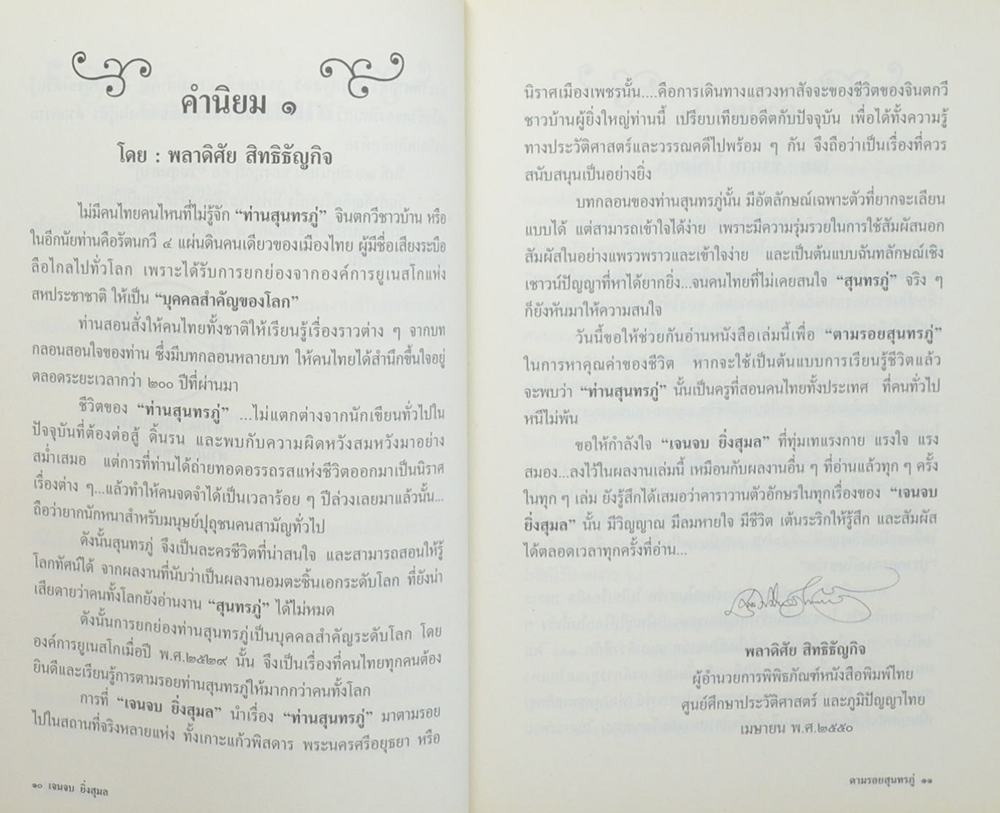 คำนิยม ๑
โดย : พลาดิศัย สิทธิธัญกิจ
ไม่มีคนไทยคนไหนที่ไม่รู้จัก “ท่านสุนทรภู่” จินตกวีชาวบ้าน หรือ
ในอีกนัยท่านคือรัตนกวี ๔ แผ่นดินคนเดียวของเมืองไทย ผู้มีชื่อเสียงระบือ
ลือไกลไปทั่วโลก เพราะได้รับการยกย่องจากองค์การยูเนสโกแห่ง
สหประชาชาติ ให้เป็น “บุคคลสำคัญของโลก”
ท่านสอนสั่งให้คนไทยทั้งชาติให้เรียนรู้เรื่องราวต่าง ๆ จากบท
กลอนสอนใจของท่าน ซึ่งมีบทกลอนหลายบท ให้คนไทยได้สำนึกขึ้นใจอยู่
ตลอดระยะเวลากว่า ๒๐๐ ปีที่ผ่านมา
ชีวิตของ “ท่านสุนทรภู่” ...ไม่แตกต่างจากนักเขียนทั่วไปใน
ปัจจุบันที่ต้องต่อสู้ ดิ้นรน และพบกับความผิดหวังสมหวังมาอย่าง
สม่ำเสมอ แต่การที่ท่านได้ถ่ายทอดอรรถรสแห่งชีวิตออกมาเป็นนิราศ
เรื่องต่าง ๆ...แล้วทำให้คนจดจำได้เป็นเวลาร้อย ๆ ปีล่วงเลยมาแล้วนั้น...
ถือว่ายากนักหนาสำหรับมนุษย์ปุถุชนคนสามัญทั่วไป
ดังนั้นสุนทรภู่ จึงเป็นละครชีวิตที่น่าสนใจ และสามารถสอนให้รู้
โลกทัศน์ได้ จากผลงานที่นับว่าเป็นผลงานอมตะชิ้นเอกระดับโลก ที่ยังน่า
เสียดายว่าคนทั้งโลกยังอ่านงาน “สุนทรภู่” ได้ไม่หมด
ดังนั้นการยกย่องท่านสุนทรภู่เป็นบุคคลสำคัญระดับโลก โดย
องค์การยูเนสโกเมื่อปี พ.ศ.๒๕๒๙ นั้น จึงเป็นเรื่องที่คนไทยทุกคนต้อง
ยินดีและเรียนรู้การตามรอยท่านสุนทรภู่ให้มากกว่าคนทั้งโลก
การที่ “เจนจบ ยิ่งสุมล” นำเรื่อง “ท่านสุนทรภู่” มาตามรอย
ไปในสถานที่จริงหลายแห่ง ทั้งเกาะแก้วพิสดาร พระนครศรีอยุธยา หรือ
๑๐ เจนจบ ยิ่งสุมล
นิราศเมืองเพชรนั้น....คือการเดินทางแสวงหาสัจจะของชีวิตของจินตกวี
ชาวบ้านผู้ยิ่งใหญ่ท่านนี้ เปรียบเทียบอดีตกับปัจจุบัน เพื่อได้ทั้งความรู้
ทางประวัติศาสตร์และวรรณคดีไปพร้อม ๆ กัน จึงถือว่าเป็นเรื่องที่ควร
สนับสนุนเป็นอย่างยิ่ง
บทกลอนของท่านสุนทรภู่นั้น มีอัตลักษณ์เฉพาะตัวที่ยากจะเลียน
แบบได้ แต่สามารถเข้าใจได้ง่าย เพราะมีความรุ่มรวยในการใช้สัมผัสนอก
สัมผัสในอย่างแพรวพราวและเข้าใจง่าย และเป็นต้นแบบฉันทลักษณ์เชิง
เชาวน์ปัญญาที่หาได้ยากยิ่ง...จนคนไทยที่ไม่เคยสนใจ “สุนทรภู่” จริง ๆ
ก็ยังหันมาให้ความสนใจ
วันนี้ขอให้ช่วยกันอ่านหนังสือเล่มนี้เพื่อ “ตามรอยสุนทรภู่”
ในการหาคุณค่าของชีวิต หากจะใช้เป็นต้นแบบการเรียนรู้ชีวิตแล้ว
จะพบว่า “ท่านสุนทรภู่” นั้นเป็นครูที่สอนคนไทยทั้งประเทศ ที่คนทั่วไป
หนีไม่พ้น
ขอให้กำลังใจ “เจนจบ ยิ่งสุมล” ที่ทุ่มเทแรงกาย แรงใจ แรง
สมอง...ลงไว้ในผลงานเล่มนี้ เหมือนกับผลงานอื่น ๆ ที่อ่านแล้วทุก ๆ ครั้ง
ในทุก ๆ เล่ม ยังรู้สึกได้เสมอว่าคาราวานตัวอักษรในทุกเรื่องของ “เจนจบ
ยิ่งสุมล” นั้น มีวิญญาณ มีลมหายใจ มีชีวิต เต้นระริกให้รู้สึก และสัมผัส
ได้ตลอดเวลาทุกครั้งที่อ่าน...
พลาดิศัย สิทธิธัญกิจ
ผู้อำนวยการพิพิธภัณฑ์หนังสือพิมพ์ไทย
ศูนย์ศึกษาประวัติศาสตร์ และภูมิปัญญาไทย
เมษายน พ.ศ.๒๕๕๐
ตามรอยสุนทรภู่ ๑๑